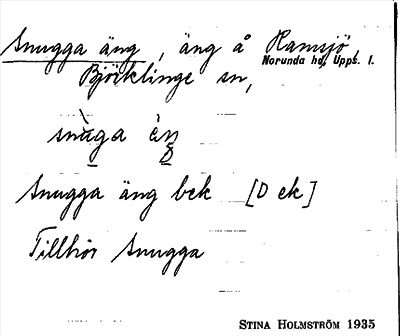 Snugga äng, äng å Ramsjö,
Norunda hd, Upps. l.
Björklinge sn,
snùga èŋ
Snugga äng bek [D ek]
Tillhör Snugga
STINA HOLMSTRÖM 1935